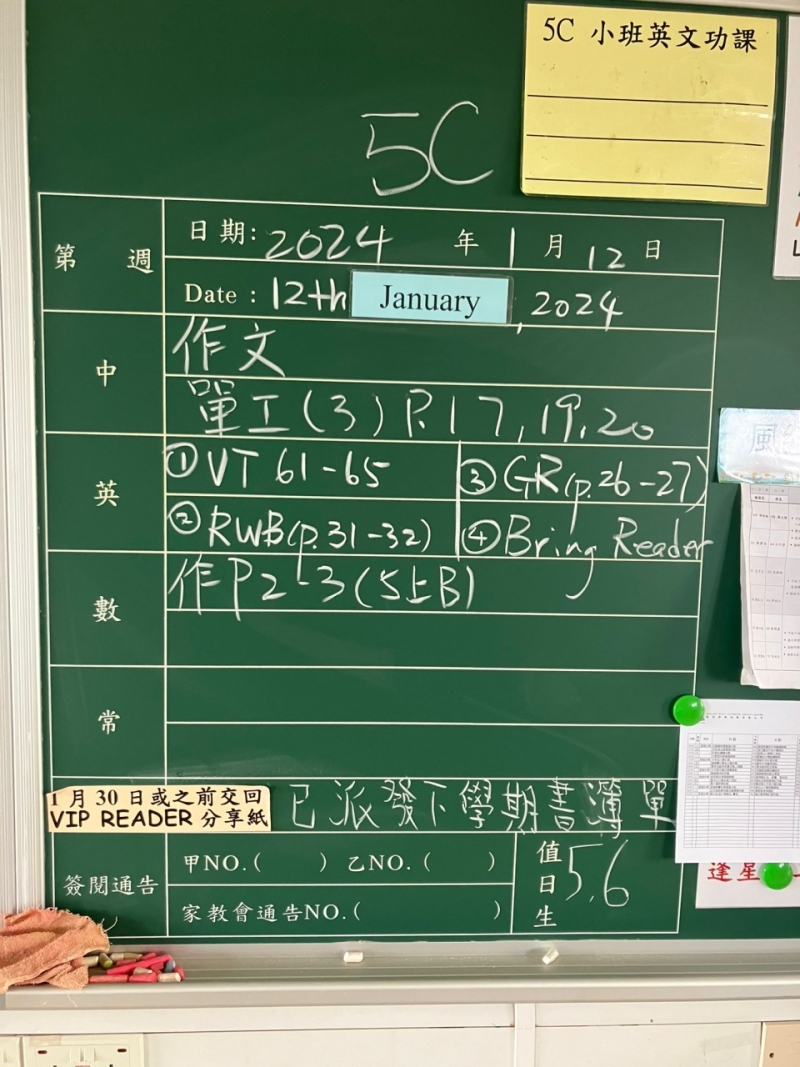 5C 小班英文功課
5C
第 週
日期: 2024 年 1 月 12 日
Date : 12th January, 2024
中
作文
單工(3) P.17, 19, 20
英
①VT 61-65
③GR(p.26-27)
②RWB(p.31-32)
④Bring Reader
數
作P2-3(5上B)
常
1月30日或之前交回
VIP READER 分享紙
已派發下學期書簿單
簽閱通告
甲NO.( ) 乙NO.( )
家教會通告NO.( )
值日生
5, 6
風
逢星